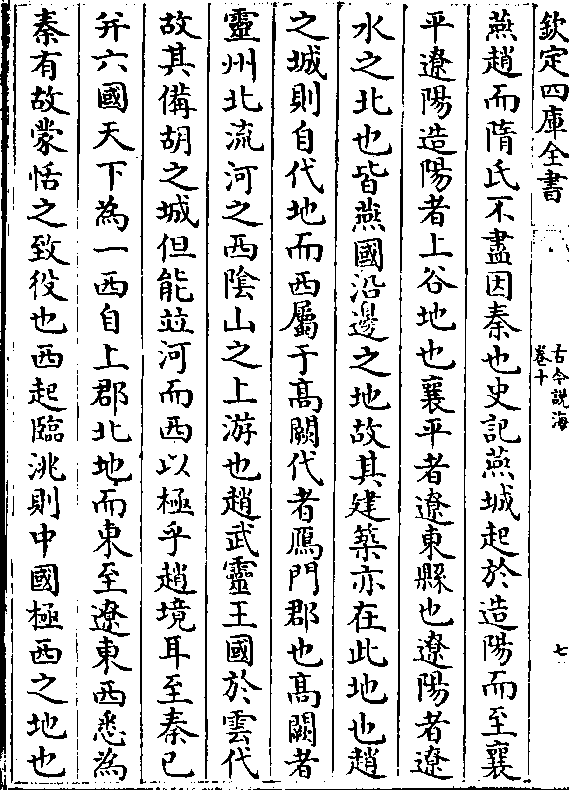 欽定四庫全書
古今說海
卷十
七
燕趙而隋氏不盡因秦也史記燕城起於造陽而至襄
平遼陽造陽者上谷地也襄平者遼東縣也遼陽者遼
水之北也皆燕國沿邊之地故其建築亦在此地也趙
之城則自代地而西屬于髙闕代者鴈門郡也髙闕者
靈州北流河之西陰山之上游也趙武靈王國於雲代
故其備胡之城但能並河而西以極乎趙境耳至秦已
并六國天下為一西自上郡北地而東至遼東西悉為
秦有故蒙恬之致役也西起臨洮則中國極西之地也